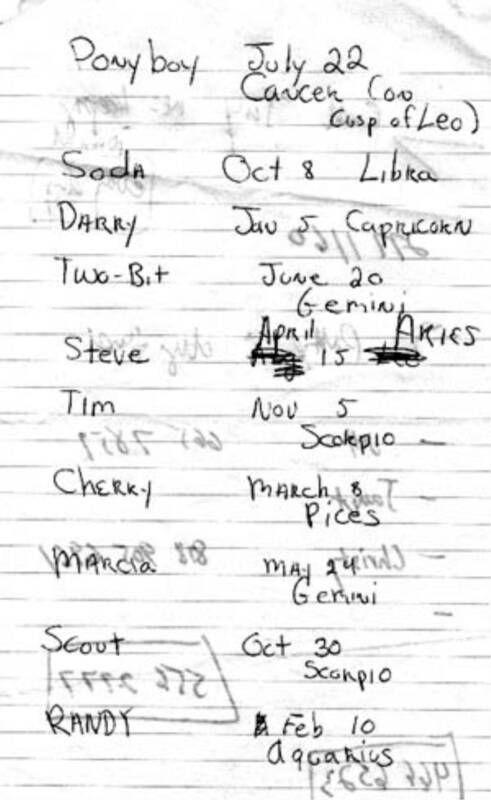 Ponyboy July 22
Cancer (on
Cusp of Leo)
Soda Oct 8 Libra
Darry Jan 5 Capricorn
Two-Bit June 20
Gemini
April Aries
Steve 15
Tim Nov 5
Scorpio
Cherry March 8
Pices
Marcia May 24
Gemini
Scout Oct 30
Scorpio
Randy Feb 10
Aquarius